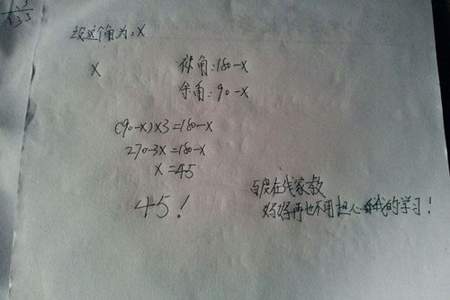 设这个角为:X
X
补角:180-X
余角:90-X
(90-X)X3=180-X
270-3X=180-X
X=45
45!
百度在线家教
妈妈再也不用担心我的学习!